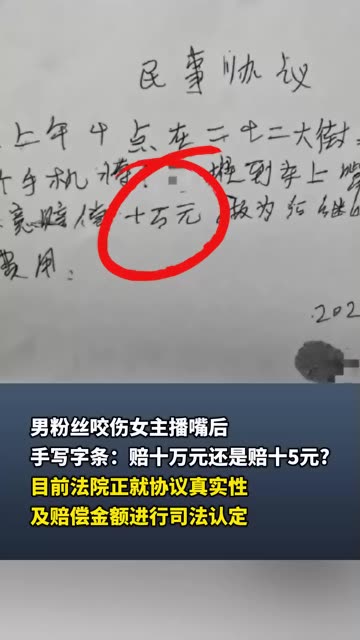 民事协议
上午十点在二七二大街
个手机 撞到车上嘴
意赔偿十万元 做为后继
费用:
.202
男粉丝咬伤女主播嘴后
手写字条：赔十万元还是赔十5元?
目前法院正就协议真实性
及赔偿金额进行司法认定